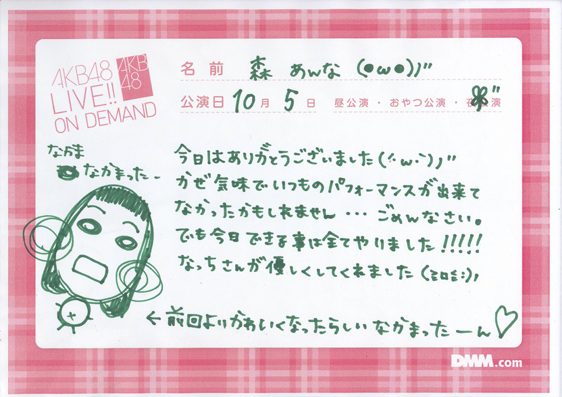 AKB48
LIVE!!
ON DEMAND
AKB
48
名前 森 あんな (●ω●)ノ"
公演日 10月 5日 昼公演・おやつ公演・夜公演
なかま
なかまったー
今日はありがとうございました(´・ω・`)ノ"
かぜ気味でいつものパフォーマンスが出来て
なかったかもしれません…ごめんなさい。
でも今日できる事は全てやりました!!!!!
なっちさんが優しくしてくれました
←前回よりかわいくなったらしいなかまったーん♡
DMM.com